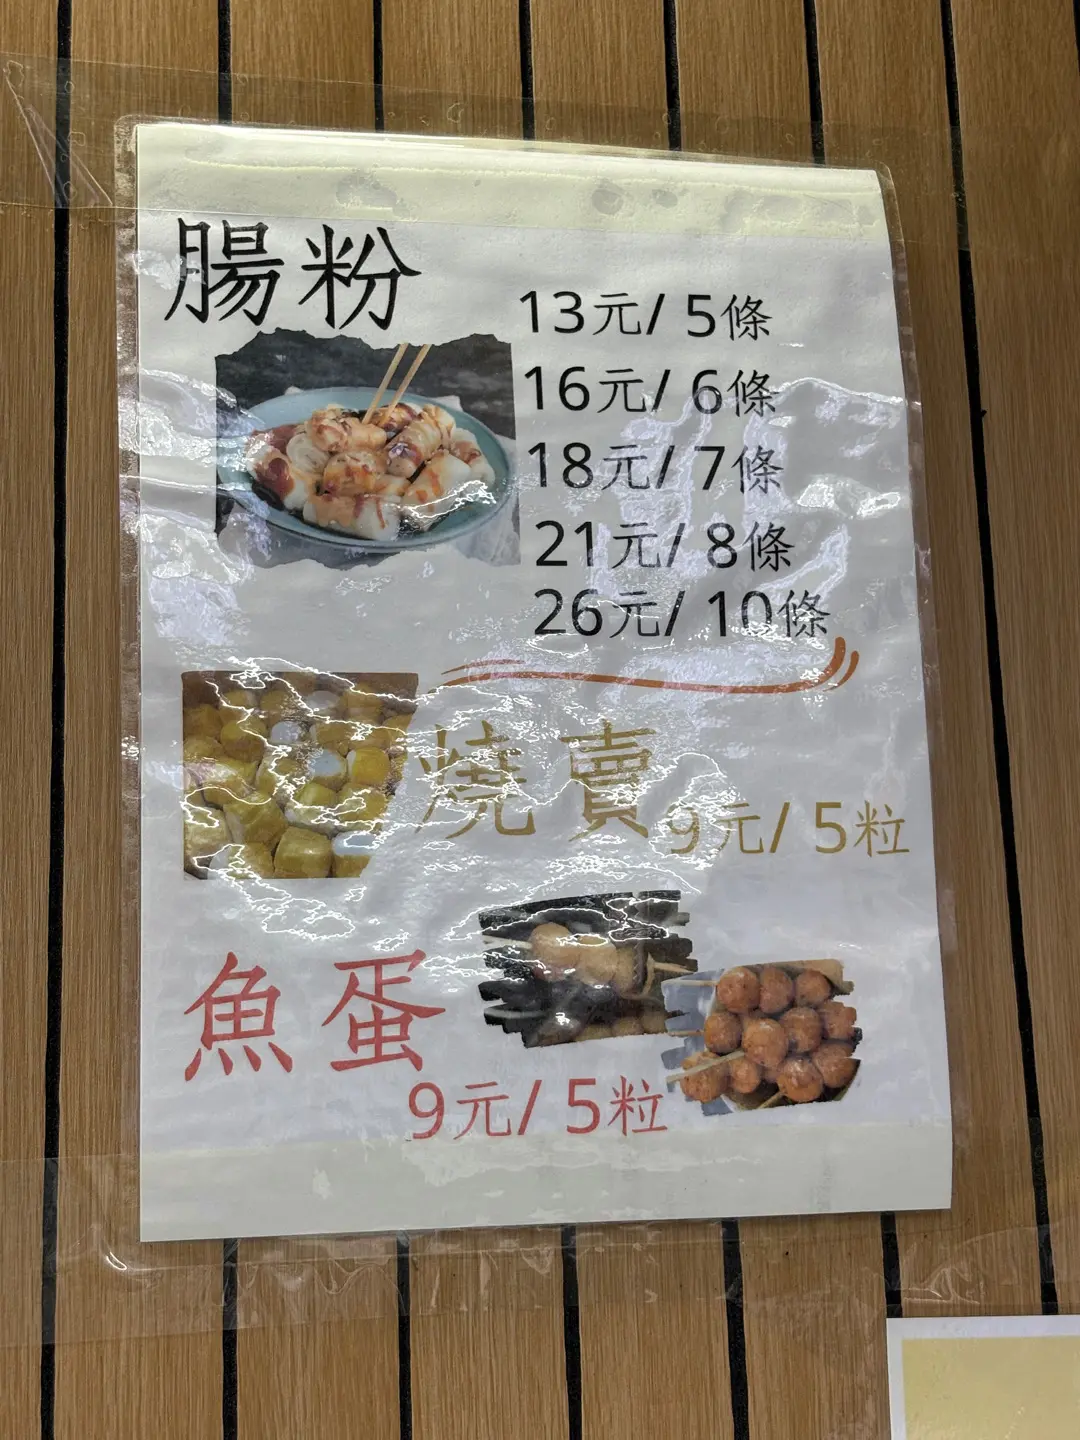 腸粉
13元/ 5條
16元/ 6條
18元/ 7條
21元/ 8條
26元/ 10條
燒賣
9元/ 5粒
魚蛋
9元/ 5粒